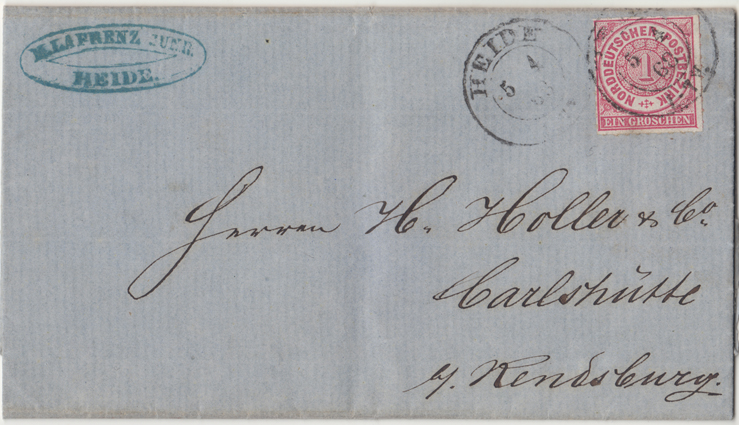 M. LAFRENZ JUNR.
HEIDE.
HEIDE
5 4
NORDDEUTSCHER POSTBEZIRK
1
EIN GROSCHEN
Herren H. Holler & Co.
Carlshütte
b/. Rendsburg.